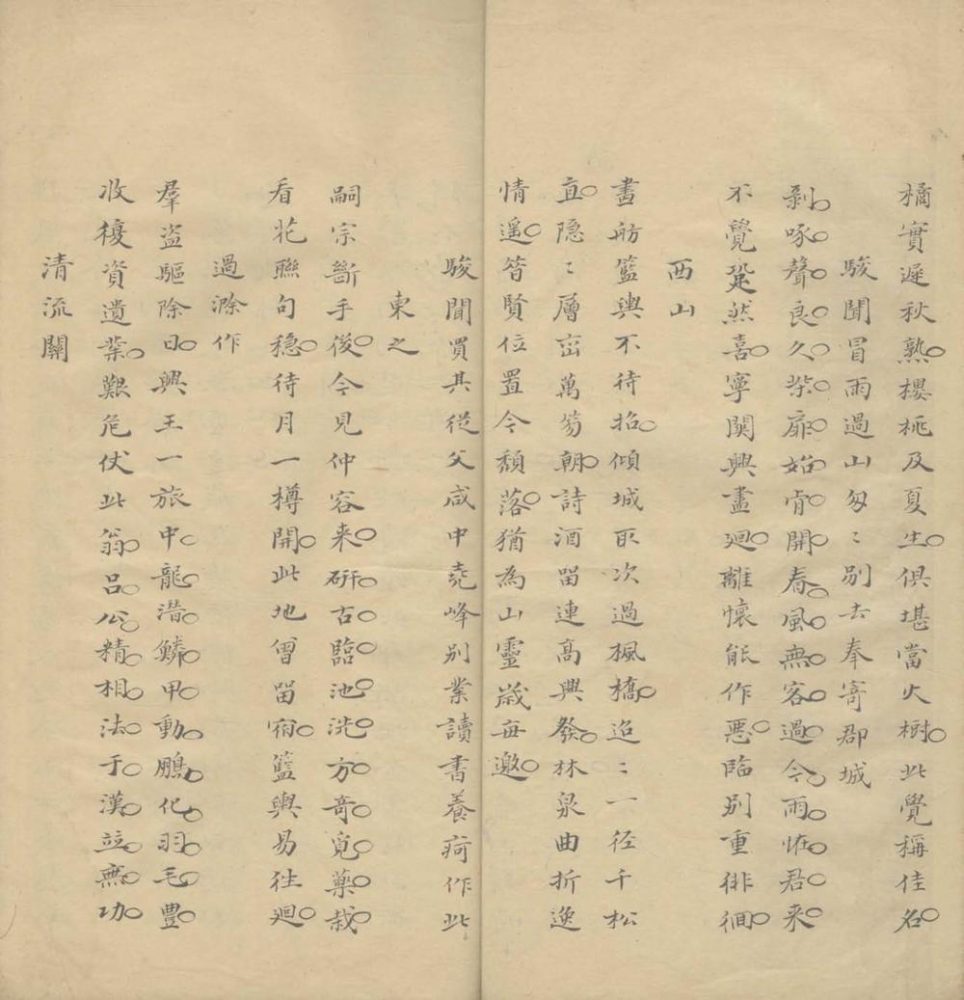 橘實遲秋熟櫻桃及夏生俱堪當火樹此覺稱佳名
駿聞冒雨過山匆〻別去奉寄郡城
剥啄聲良久柴扉始肯開春風無客過今雨恠君来
不覺跫然喜寧関興盡廻離懷能作惡臨別重徘徊
西山
畫舫籃輿不待招傾城取次過楓橋迢〻一径千松
直隐〻層峦萬笏朝詩酒留連高興發林泉曲折逸
情遥昝賢位置今頽落猶為山靈歳每邀
駿聞買其從父咸中堯峰别業讀書養疴作此
東之
嗣宗斷手後今見仲容来硏古臨池洗方竒覓藥栽
看花聯句穩待月一樽開此地曽留宿籃輿易往廻
過滁作
羣盗驅除日興王一旅中龍潜鱗甲動鵬化羽毛豐
收穫資遺業艱危仗此翁呂公精相法于漢竝無功
清流關